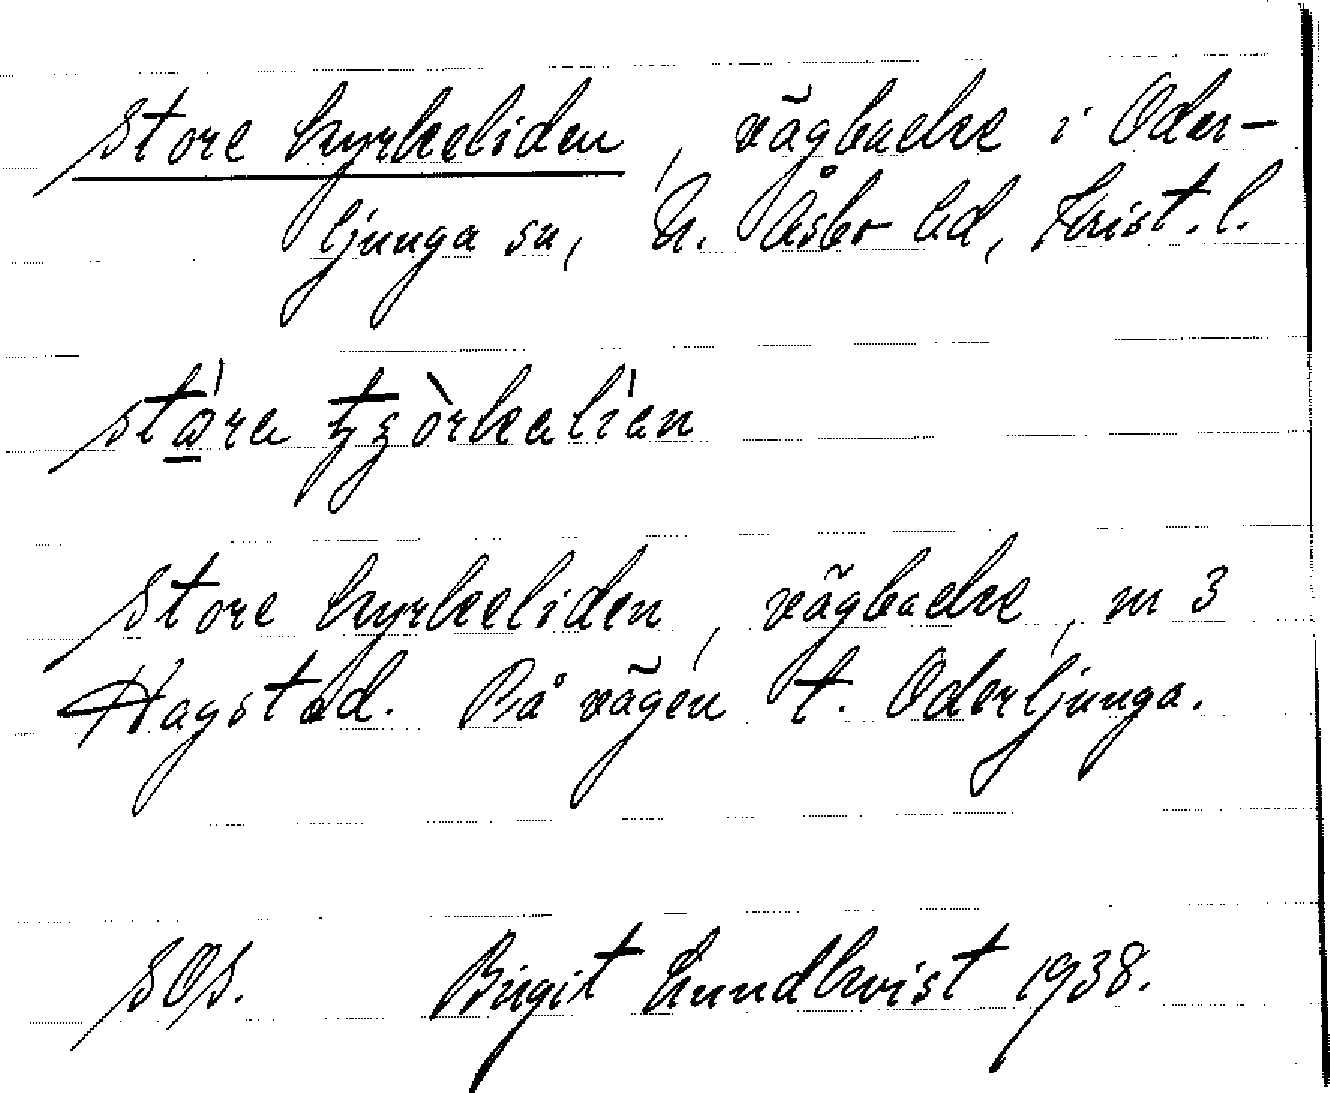 Store kyrkeliden, vägbacke i Oder-
ljunga sn, N. Åsbo hd, Krist. l.
Store kyrkeliden, vägbacke, nr 3
Hagstad. På vägen t. Oderljunga.
SOS. Birgit Lundkvist 1938.